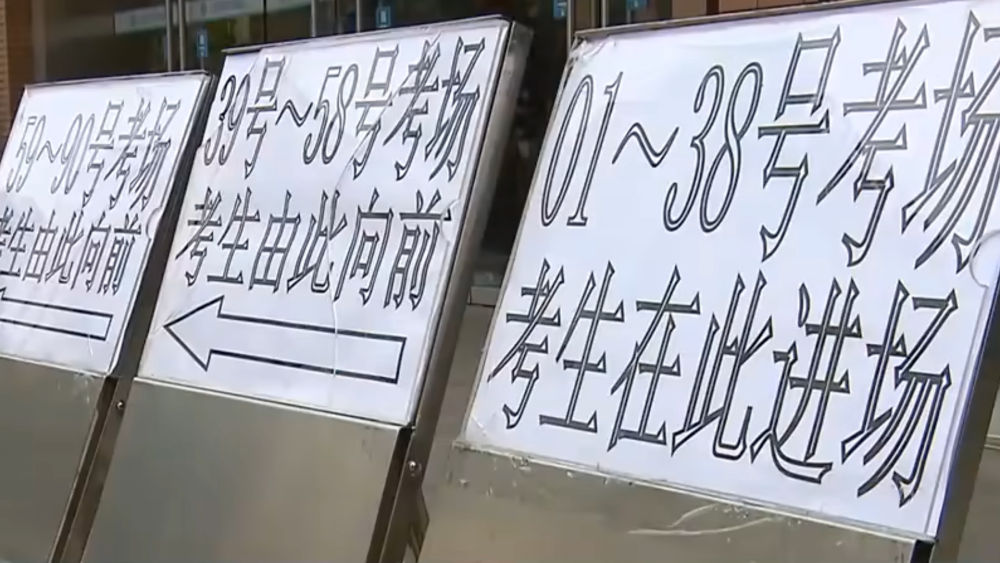 59~90号考场
考生由此向前
39号~58号考场
考生由此向前
01~38号考场
考生在此进场